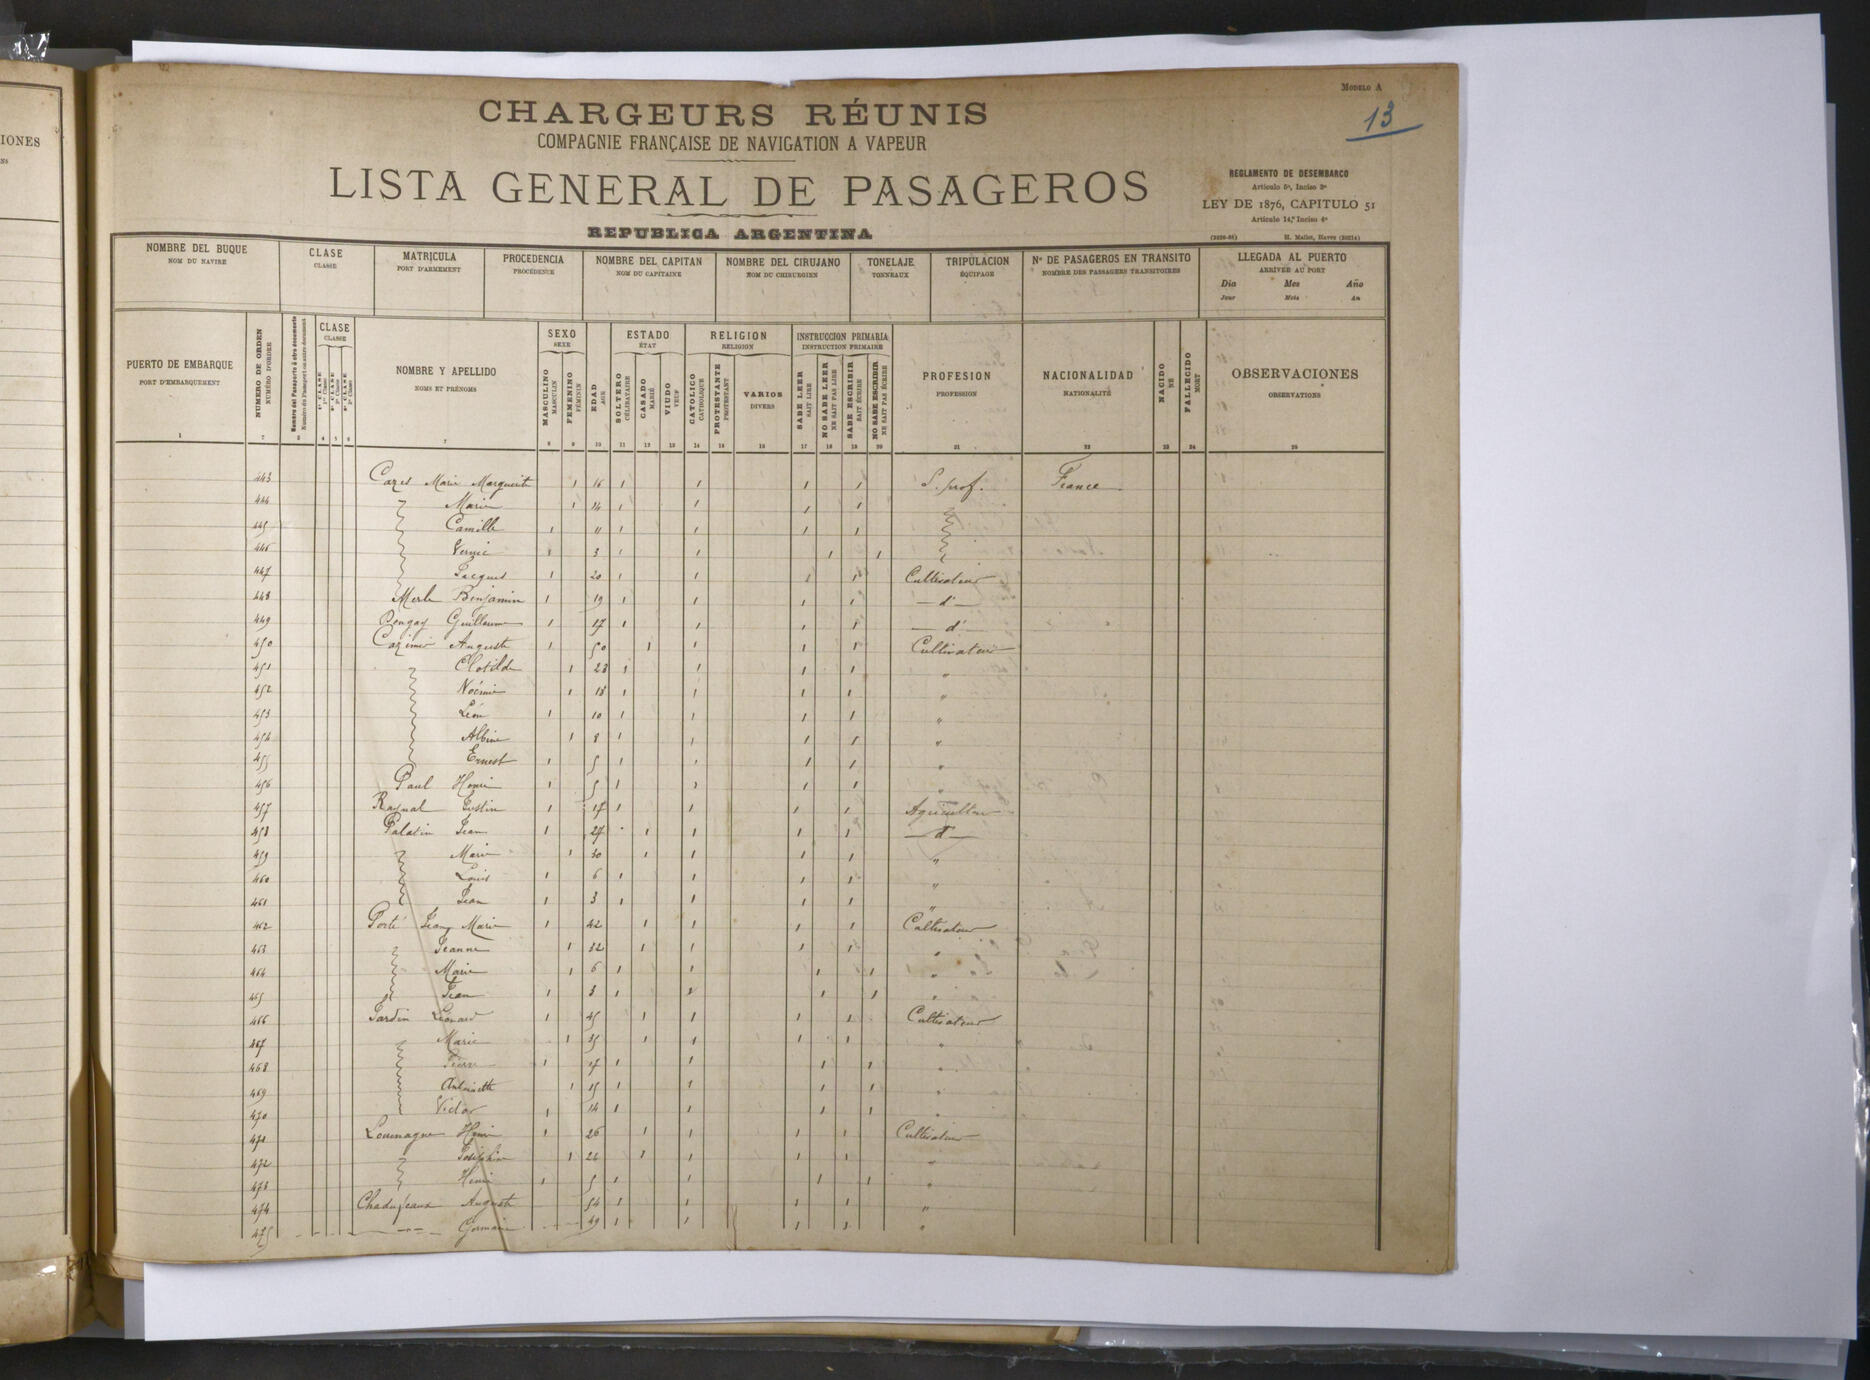 IONES
Modelo A
13
CHARGEURS RÉUNIS
COMPAGNIE FRANÇAISE DE NAVIGATION A VAPEUR
LISTA GENERAL DE PASAGEROS
REPUBLICA ARGENTINA
REGLAMENTO DE DESEMBARCO
Artículo 5º, Inciso 3º
LEY DE 1876, CAPITULO 51
Artículo 14º, Inciso 4º
H. Mallet, Havre
NOMBRE DEL BUQUE CLASE MATRICULA PROCEDENCIA NOMBRE DEL CAPITAN NOMBRE DEL CIRUJANO TONELAJE TRIPULACION Nº DE PASAGEROS EN TRANSITO LLEGADA AL PUERTO
NOM DU NAVIRE CLASSE PORT D'ARMEMENT PROCÉDENCE NOM DU CAPITAINE NOM DU CHIRURGIEN TONNEAUX ÉQUIPAGE NOMBRE DES PASSAGERS TRANSITOIRES ARRIVÉE AU PORT
Dia Mes Año
Jour Mois An
PUERTO DE EMBARQUE
PORT D'EMBARQUEMENT
NUMERO DE ORDEN
NUMÉRO D'ORDRE
Numéro du Passeport ou autre document
CLASE
CLASSE
1ª CLASE
2ª CLASE
3ª CLASE
NOMBRE Y APELLIDO
NOMS ET PRÉNOMS
SEXO
SEXE
MASCULINO
MASCULIN
FEMENINO
FÉMININ
EDAD
AGE
ESTADO
ÉTAT
SOLTERO
CÉLIBATAIRE
CASADO
MARIÉ
VIUDO
VEUF
RELIGION
RELIGION
CATOLICO
CATHOLIQUE
PROTESTANTE
PROTESTANT
VARIOS
DIVERS
INSTRUCCION PRIMARIA
INSTRUCTION PRIMAIRE
SABE LEER
SAIT LIRE
NO SABE LEER
NE SAIT PAS LIRE
SABE ESCRIBIR
SAIT ÉCRIRE
NO SABE ESCRIBIR
NE SAIT PAS ÉCRIRE
PROFESION
PROFESSION
NACIONALIDAD
NATIONALITÉ
NACIDO
NÉ
FALLECIDO
MORT
OBSERVACIONES
OBSERVATIONS
1 2 3 4 5 6 7 8 9 10 11 12 13 14 15 16 17 18 19 20 21 22 23 24 25
443 Cazes Marie Marguerite 1 16 1 1 1 1 S. prof. France
444 Marie 1 14 1 1 1 1
445 Camille 1 11 1 1 1 1
446 1 3 1 1 1 1
447 Jacques 1 20 1 1 1 1 Cultivateur
448 Merle Benjamin 1 19 1 1 1 1 — d° —
449 Guillaume 1 17 1 1 1 1 — d° —
450 Cazimir Auguste 1 50 1 1 1 1 Cultivateur
451 Clotilde 1 23 1 1 1 1 "
452 Noémie 1 18 1 1 1 1 "
453 Léon 1 10 1 1 1 1 "
454 Albine 1 8 1 1 1 1 "
455 Ernest 1 5 1 1 1 1 "
456 Paul Henri 1 5 1 1 1 1 "
457 Raynal Justin 1 17 1 1 1 1 Agriculteur
458 Palatin Jean 1 27 1 1 1 1 — d° —
459 Marie 1 30 1 1 1 1 "
460 Louis 1 6 1 1 1 1 "
461 Jean 1 3 1 1 1 1 "
462 Porté Jean Marie 1 42 1 1 1 1 Cultivateur
463 Jeanne 1 32 1 1 1 1 "
464 Marie 1 6 1 1 1 1 "
465 Jean 1 3 1 1 1 1 "
466 Jardin Léonard 1 45 1 1 1 1 Cultivateur
467 Marie 1 35 1 1 1 1 "
468 Pierre 1 17 1 1 1 1 "
469 Antoinette 1 15 1 1 1 1 "
470 Victor 1 14 1 1 1 1 "
471 Loumagne Henri 1 26 1 1 1 1 Cultivateur
472 Joséphine 1 1 1 1 1 "
473 Henri 1 5 1 1 1 1 "
474 Auguste 54 1 1 1 1 "
475 Germain 49 1 1 1 1 "